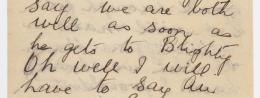 say we are both
well as soon as
he gets to Brighty
Oh well I will
have to say au